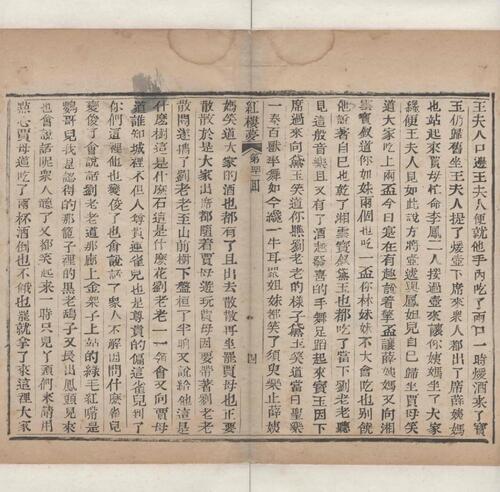 王夫人口邊王夫人便就他手內吃了兩口一時煖酒來了寶
玉仍歸舊坐王夫人提了煖壺下席來衆人都出了席薛姨媽
也站起來賈母忙命李鳳二人接過壺來讓你姨媽坐了大家
纔便王夫人見如此說方將壺遞與鳳姐兒自己歸坐賈母笑
道大家吃上兩盃今日寔在有趣說着擎盃讓薛姨媽又向湘
雲寶釵道你姐妹兩個也吃一盃你林妹妹不大會吃也別饒
他說著自己也乾了湘雲寶釵黛玉也都吃了當下劉老老聽
見這般音樂且又有了酒越發喜的手舞足蹈起來寶玉因下
席過來向黛玉笑道你瞧劉老老的樣子黛玉笑道當日聖樂
一奏百獸率舞如今纔一牛耳眾姐妹都笑了須臾樂止薛姨
紅樓夢 第四十一囘 四
媽笑道大家的酒也都有了且出去散散再坐罷賈母也正要
散散於是大家出席都隨着賈母遊玩賈母因要帶著劉老老
散悶遂攜了劉老老至山前樹下盤桓了半晌又說給他這是
什麼樹這是什麼石這是什麼花劉老老一一領會又向賈母
道誰知城裡不但人尊貴連雀兒也是尊貴的偏這雀兒到了
你們這裡他也變俊了也會說話了衆人不解因問什麼雀兒
變俊了會說話劉老老道那廊上金架子上站的綠毛紅嘴是
鸚哥兒我是認得的那籠子裡的黑老鴰子又長出鳳頭兒來
也會說話呢衆人聽了又都笑起來一時只見丫頭們來請用
點心賈母道吃了兩杯酒倒也不餓也罷就拿了來這裡大家